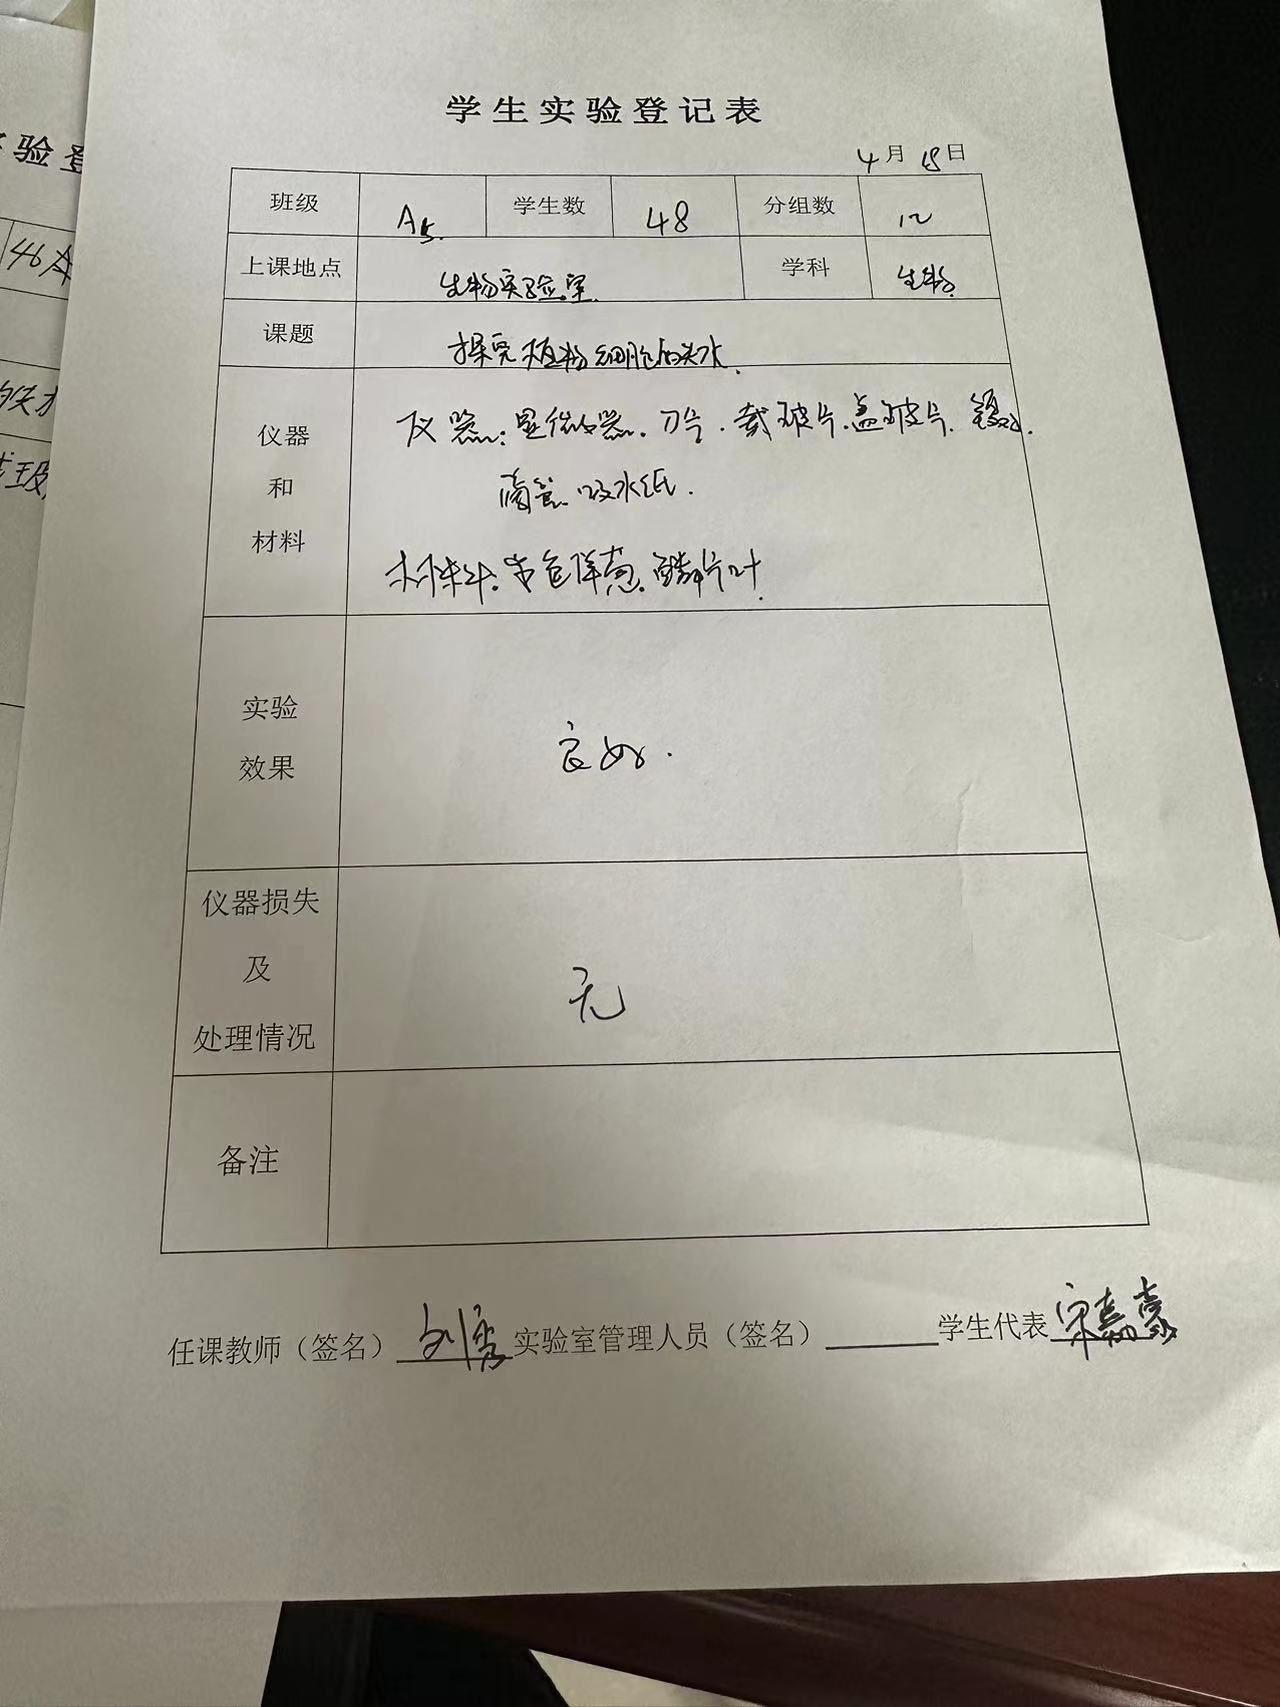 学生实验登记表
4月15日
班级 A5. 学生数 48 分组数 12
上课地点 生物实验室. 学科 生物.
课题 探究植物细胞的失水.
仪器和材料
仪器:显微器.刀片.载玻片.盖玻片.镊子.
滴管.吸水纸.
材料:紫色洋葱.鳞片叶.
实验效果 良好.
仪器损失及处理情况 无
备注
任课教师(签名) 实验室管理人员(签名) 学生代表 宋嘉豪
验登
46本
的失水
玻